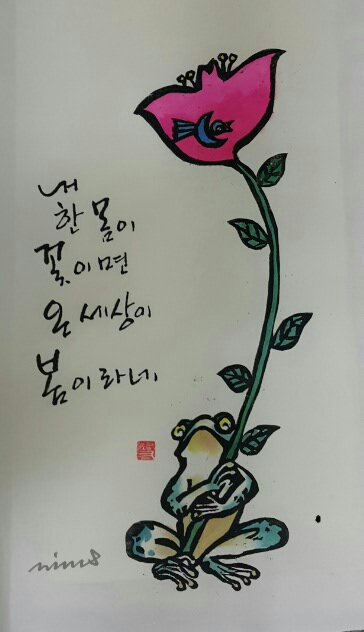 내
한 몸이
꽃이면
온 세상이
봄이라네